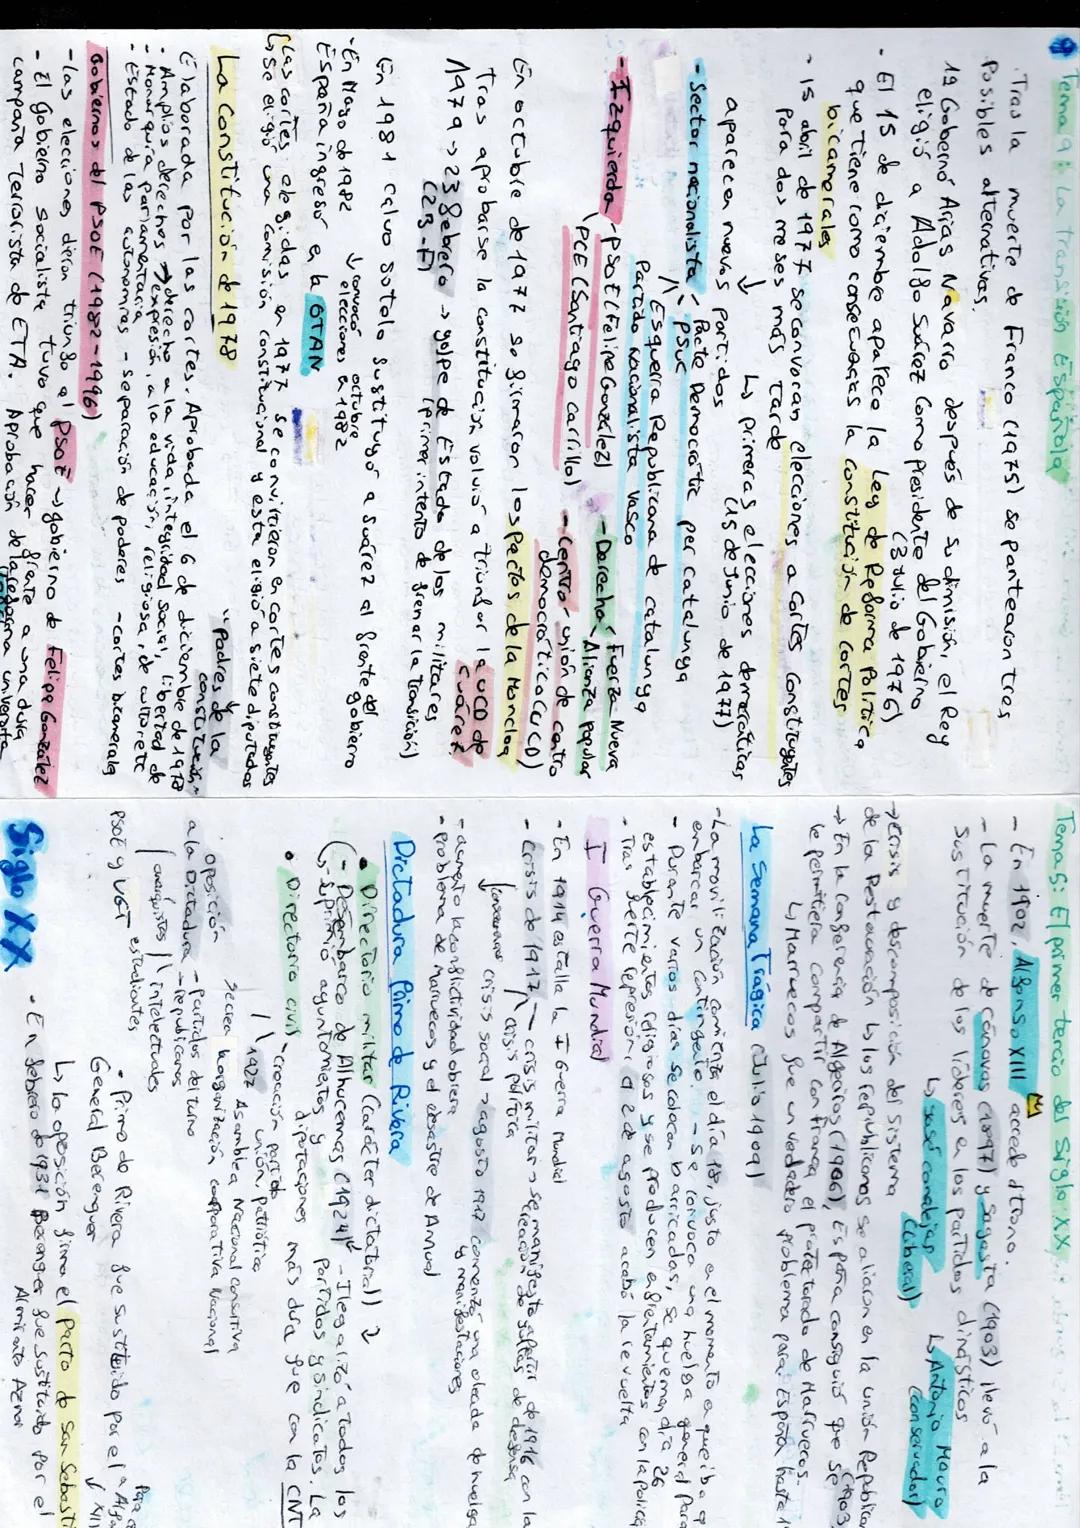 Tema 9: La transición Española
· Tras la muerte de Franco (1975) se plantearon tres
Posibles alternativas.
1º Gobernó Arias Navarro después de su dimisión, el Rey
eligió a Adolfo Suárez como presidente del Gobierno
(3 Julio de 1976)
· El 15 de diciembre aparece la Ley de Reforma Política
que tiene como consecuencias la constitución de cortes
bicamerales
· 15 abril de 1977 se convocan elecciones a cortes constituyentes
para dos meses más tarde
↳ primeras elecciones democráticas
(15 de Junio de 1977)
aparecen nuevos partidos
- Sector nacionalista
Pacte Democràtic per catalunya
PSUC
Esquerra Republicana de catalunya
Partido Nacionalista Vasco
- Izquierda
- PSOE (Felipe González)
PCE (Santiago Carrillo)
- Derecha
Fuerza Nueva
Alianza popular
- Centro - unión de centro
democrático (UCD)
En octubre de 1977 se firmaron los pactos de la Moncloa
Tras aprobarse la constitución volvió a triunfar la UCD de
suárez.
1979 → 23 febrero → golpe de Estado de los militares
(23-F) (primer intento de frenar la transición)
En 1981 calvo sotelo sustituyó a suárez al frente del
gobierno
↓ convocó octubre
elecciones a 1982
· En Mayo de 1982
España ingresó a la OTAN
Las cortes elegidas en 1977 se convirtieron en cortes constituyentes
↳ Se eligió una comisión constitucional y esta eligió a siete diputados
"Padres de la
constitución"
La Constitución de 1978
Elaborada por las cortes. Aprobada el 6 de diciembre de 1978
· Amplios derechos → derecho a la vida, integridad social, libertad de
expresión, a la educación, religiosa, de culto, etc
· Monarquía parlamentaria
· Estado de las autonomías - separación de poderes - cortes bicameral
Gobiernos del PSOE (1982-1996)
- Las elecciones dieron triunfo al PSOE → gobierno de Felipe González
- El Gobierno socialista tuvo que hacer frente a una dura
campaña Terrorista de ETA. Aprobación de la reforma universita
Tema 5: El primer tercio del siglo XX
- En 1902, Alfonso XIII accede al trono.
- La muerte de cánovas (1897) y Sagasta (1903) llevó a la
sustitución de los líderes en los partidos dinásticos
↳ José canalejas
(liberal)
↳ Antonio Maura
(conservador)
→ Crisis y descomposición del sistema
de la Restauración ↳ los republicanos se aliaron en la unión Republican
(1903)
→ En la Conferencia de Algeciras (1906), España consiguió que se
le permitiera compartir con Francia el protectorado de Marruecos.
↳ Marruecos fue un verdadero problema para España hasta 1
La Semana Trágica (Julio 1909)
- La movilización comienza el día 18, justo en el momento en que iba a
embarcar un contingente - Se convocó una huelga general para
- Durante varios días se colocan barricadas, se queman
establecimientos religiosos y se producen enfrentamientos con la Policía
- Tras fuerte represión el 2 de agosto acabó la revuelta
I Guerra Mundial
- En 1914 estalla la I Guerra Mundial
- Crisis de 1917
crisis militar → se manifestó a partir de 1916 con la
creación de Juntas de defensa
crisis política
crisis social → agosto 1917 comenzó una oleada de huelga
y manifestaciones
- aumento la conflictividad obrera
- problema de Marruecos y el desastre de Annual
Dictadura Primo de Rivera
• Directorio militar (carácter dictatorial)
- Desembarco de Alhucemas (1924) - Ilegalizó a todos los
- suprimió ayuntamientos y partidos y sindicatos. La
diputaciones más dura fue con la CNT
• Directorio civil - creación partido
unión patriótica
1927 Asamblea Nacional consultiva
Se crea la organización corporativa Nacional
Oposición
a la Dictadura
- partidos del turno
- republicanos
anarquistas
intelectuales
estudiantes
PSOE y UGT
· Primo de Rivera fue sustituido por el
General Berenguer
↳ la oposición firma el Pacto de San Sebasti
· En febrero de 1931 Berenguer fue sustituido por el
Almirante Aznar
Siglo XX